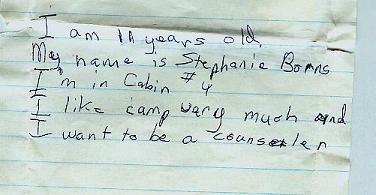 I am 11 years old.
My name is Stephanie Borns
I'm in Cabin # 4
I like camp vary much and
I want to be a counseler